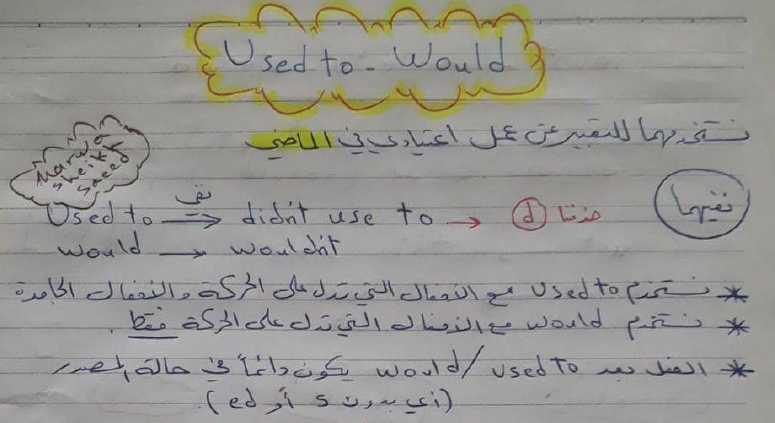 Used to - Would
نستخدمهما للتعبير عن عمل اعتيادي في الماضي
Marwa
sheikh
saeed
نفيهما
Used to نفي → didn't use to → (d) حذفنا
would → wouldn't
* نستخدم used to مع الأفعال التي تدل على الحركة والأفعال الجامدة
* نستخدم would مع الأفعال التي تدل على الحركة فقط.
* الفعل بعد would/used to يكون دائماً في حالة المصدر
(أي بدون s أو ed).